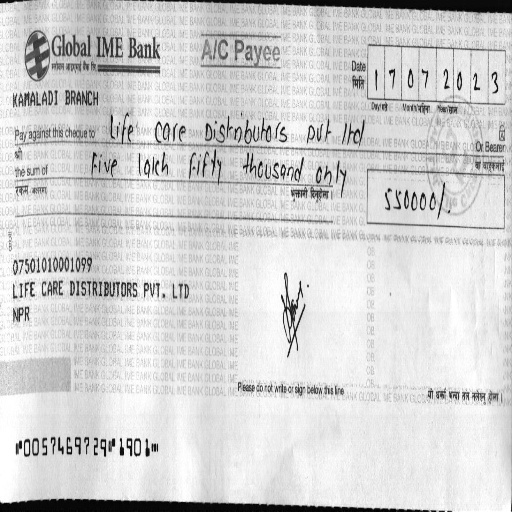 Global IME Bank
A/C Payee
Date
मिति
17072023
KAMALADI BRANCH
Pay against this cheque to Life care Distributors pvt ltd
Or Bearer
श्री
the sum of Five lakh Fifty thousand only
550000/.
07501010001099
LIFE CARE DISTRIBUTORS PVT. LTD
NPR
Please do not write or sign below this line
"005746972" 1901"